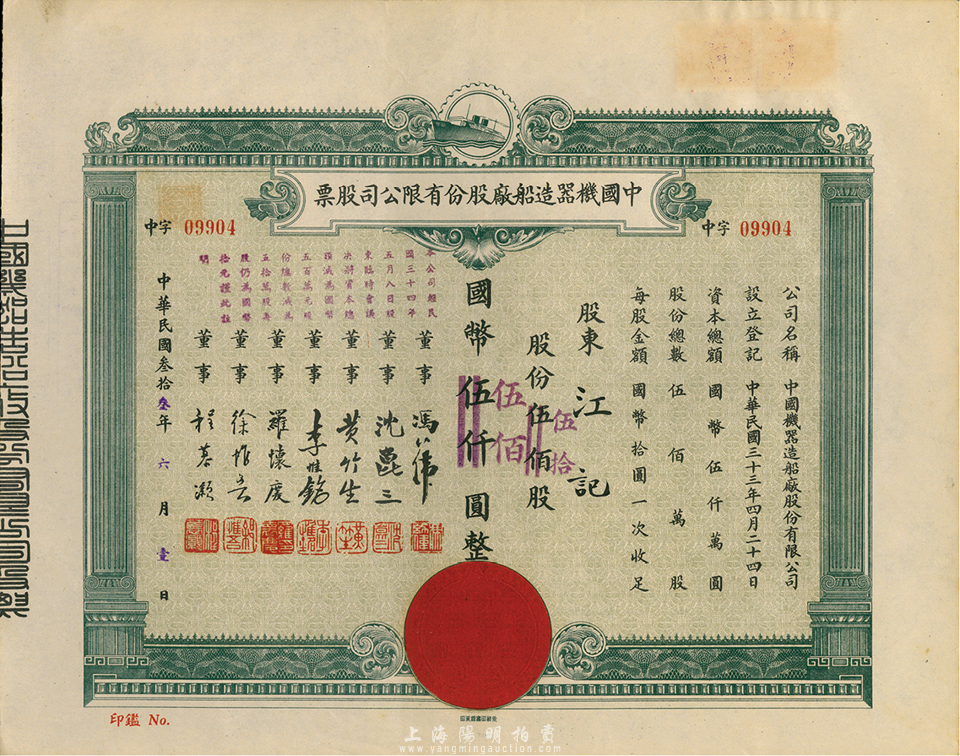 中國機器造船廠股份有限公司股票
中字 09904
中字 09904
公司名稱 中國機器造船廠股份有限公司
設立登記 中華民國三十三年四月二十四日
資本總額 國幣伍仟萬圓
股份總數 伍佰萬股
每股金額 國幣拾圓一次收足
股東 江記
股份伍佰股
伍拾
國幣伍仟圓整
伍佰
本公司經民
國三十四年
五月八日股
東臨時會議
決將資本總
額減為國幣
五百萬元股
份總數減為
五拾萬股每
股仍為國幣
拾元謹此註
明
董事
董事 沈崑三
董事 黃竹生
董事 李
董事 羅懷慶
董事 徐
董事 程慕灝
中華民國叁拾叁年六月壹日
印鑑 No.
上海陽明拍賣
www.yangmingauction.com